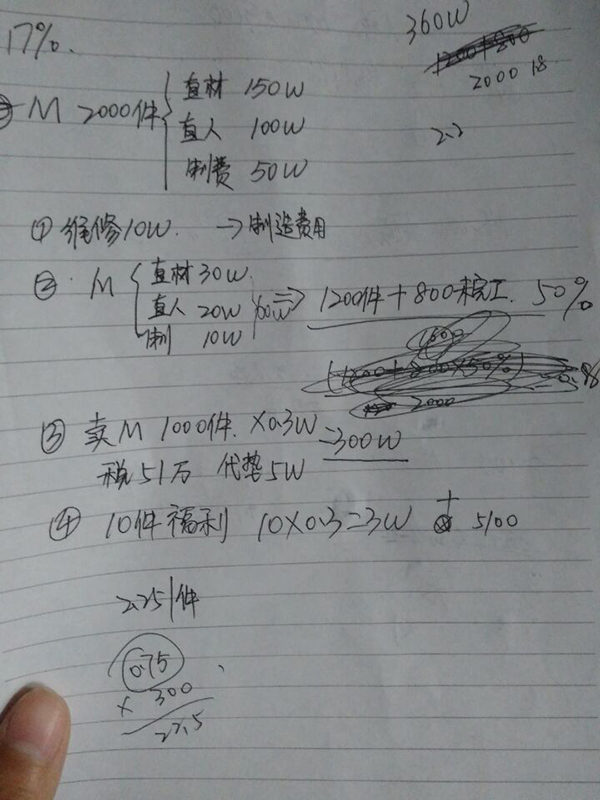 17%.
360W
2000 18
M 2000件
直材 150W
直人 100W
制费 50W
2.2
① 维修10W. →制造费用
② M
直材30W
直人 20W
制 10W
60W ⇒ 1200件+800未完工. 50%
2000
③ 卖M 1000件. ×0.3W=300W
税51万 代垫5W
④ 10件福利 10×0.3=3W + 5100
2.25/件
0.75
× 300
27.5